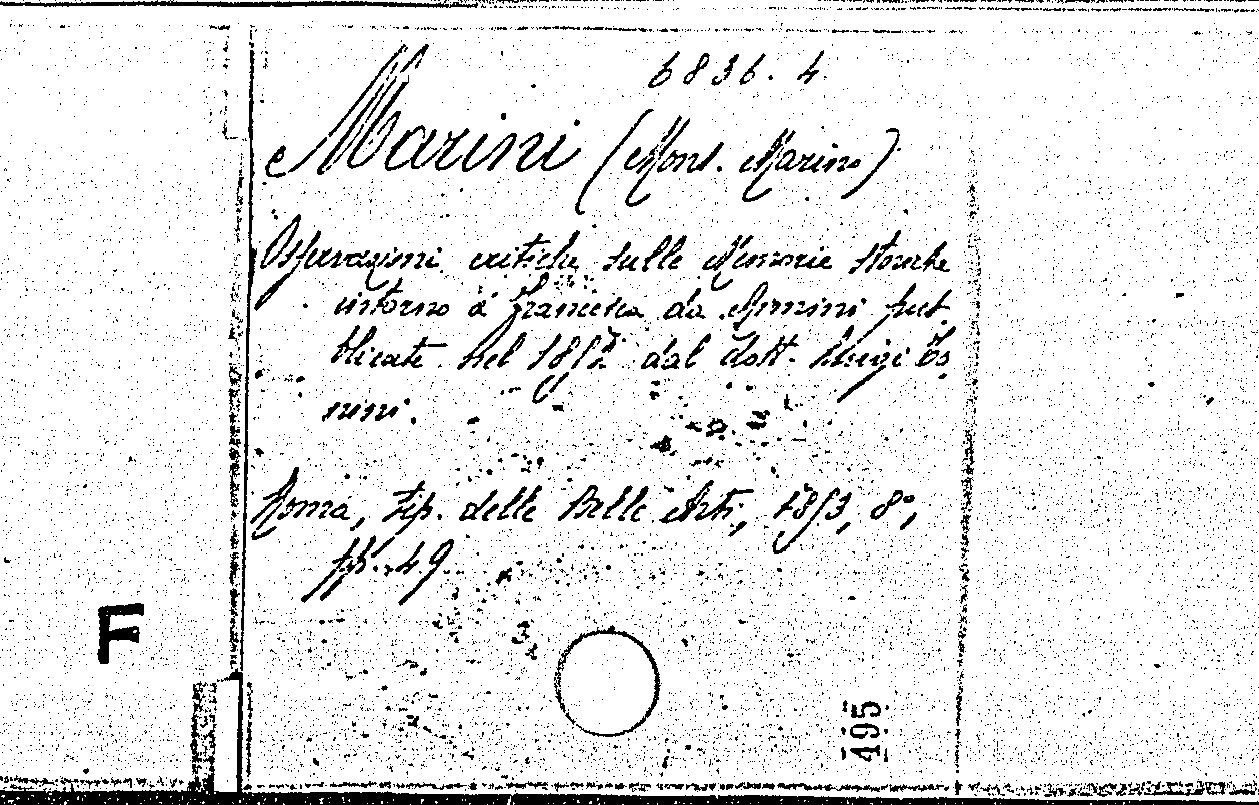 6836. 4
Marini (Mons. Marino)
Osservazioni critiche sulle Memorie storiche
intorno a Francesca da Rimini pub
blicate nel 1852 dal dott. Luigi To
nini.
Roma, tip. delle Belle Arti, 1853, 8°,
pp. 49.
F
495